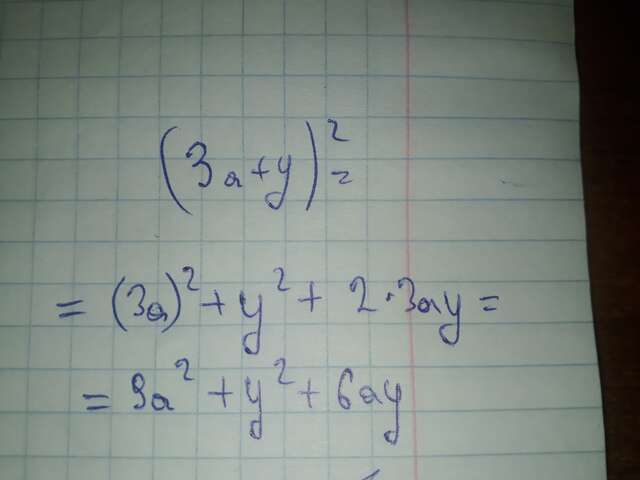 (3a+y)² =
= (3a)² + y² + 2·3ay =
= 9a² + y² + 6ay